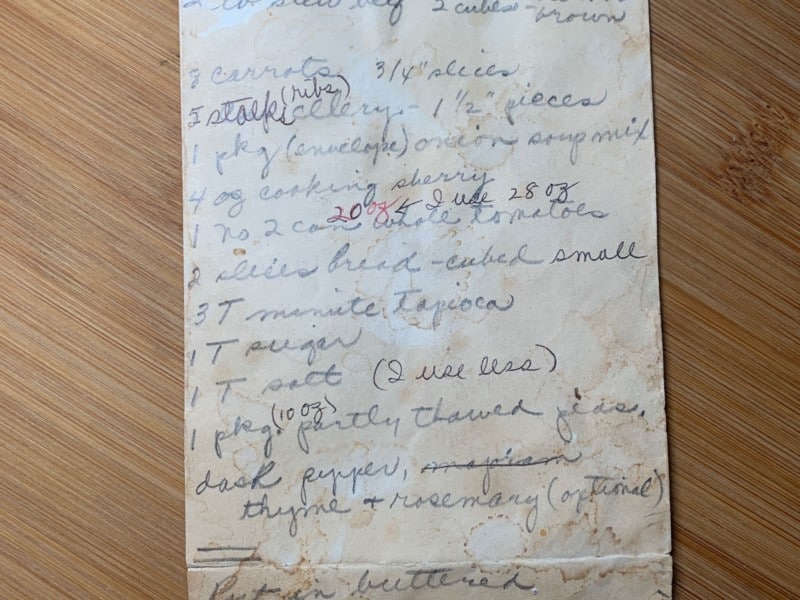 2 lb stew beef 2" cubes - brown
8 carrots 3/4" slices
5 stalk (ribs) cellery - 1 1/2" pieces
1 pkg (envelope) onion soup mix
4 oz cooking sherry
20 oz I use 28 oz
1 no 2 can whole tomatoes
2 slices bread - cubed small
3 T minute Tapioca
1 T sugar
1 T salt (I use less)
1 pkg (10 oz) partly thawed peas.
dash pepper,
thyme + rosemary (optional)
Put in buttered